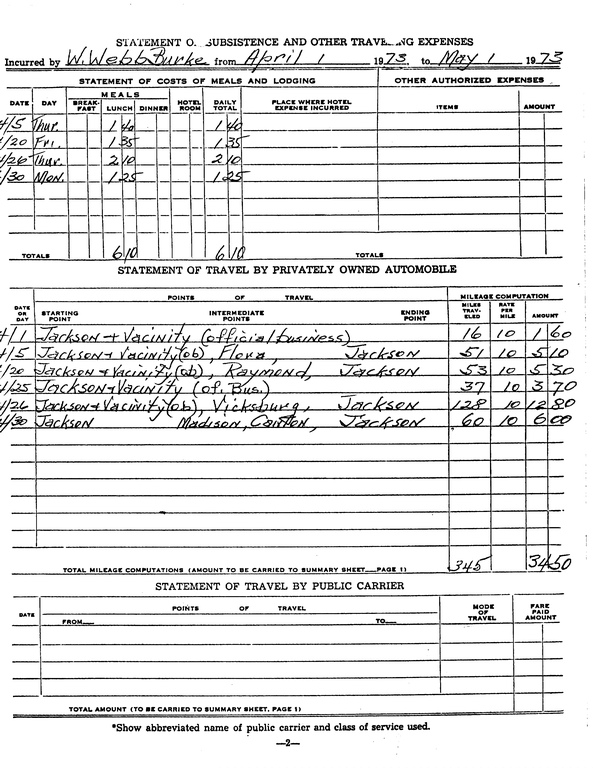 STATEMENT O. SUBSISTENCE AND OTHER TRAVEL NG EXPENSES
Incurred by W. Webb Burke from April 1 1973. to May 1 1973
STATEMENT OF COSTS OF MEALS AND LODGING OTHER AUTHORIZED EXPENSES
DATE DAY MEALS BREAK-FAST LUNCH DINNER HOTEL ROOM DAILY TOTAL PLACE WHERE HOTEL EXPENSE INCURRED ITEMS AMOUNT
4/5 Thur. 1 40 1 40
4/20 Fri. 1 35 1 35
4/26 Thur. 2 10 2 10
4/30 Mon. 1 25 1 25
TOTALS 6 10 6 10 TOTALS
STATEMENT OF TRAVEL BY PRIVATELY OWNED AUTOMOBILE
POINTS OF TRAVEL MILEAGE COMPUTATION
DATE OR DAY STARTING POINT INTERMEDIATE POINTS ENDING POINT MILES TRAV-ELED RATE PER MILE AMOUNT
4/1 Jackson + Vacinity (official business) 16 10 1 60
4/5 Jackson + Vacinity (ob), Flora, Jackson 51 10 5 10
4/20 Jackson + Vacinity (ob), Raymond, Jackson 53 10 5 30
4/25 Jackson + Vacinity (of. Bus.) 37 10 3 70
4/26 Jackson + Vacinity (ob), Vicksburg, Jackson 128 10 12 80
4/30 Jackson Madison, Canton, Jackson 60 10 6 00
TOTAL MILEAGE COMPUTATIONS (AMOUNT TO BE CARRIED TO SUMMARY SHEET PAGE 1) 345 34 50
STATEMENT OF TRAVEL BY PUBLIC CARRIER
DATE POINTS OF TRAVEL MODE OF TRAVEL FARE PAID AMOUNT
FROM TO
TOTAL AMOUNT (TO BE CARRIED TO SUMMARY SHEET, PAGE 1)
*Show abbreviated name of public carrier and class of service used.
—2—